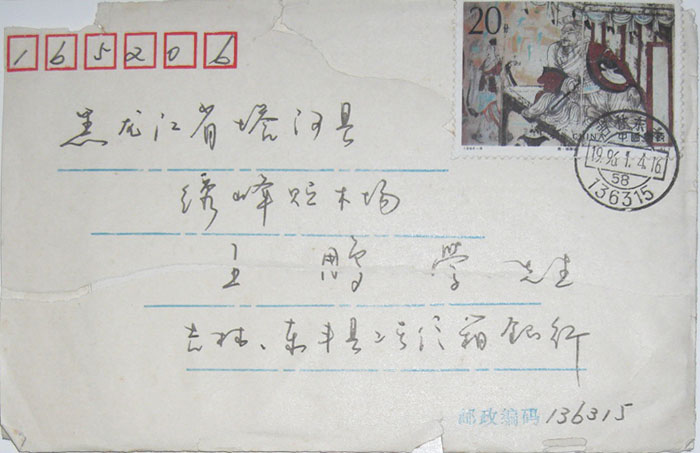 165206
20
分
CHINA 中国邮政
吉林东丰
1996.1.4.16
58
136315
黑龙江省塔河县
绣峰贮木场
王鹏学 先生
吉林、东丰县2号信箱 银行
邮政编码 136315